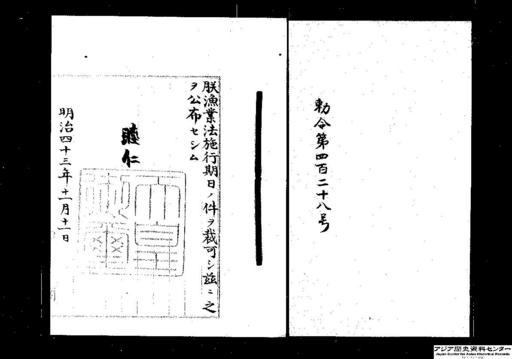 勅令第四百二十八号
朕漁業法施行期日ノ件ヲ裁可シ茲ニ之
ヲ公布セシム
睦仁
天皇御璽
明治四十三年十一月十一日
アジア歴史資料センター
Japan Center for Asian Historical Records